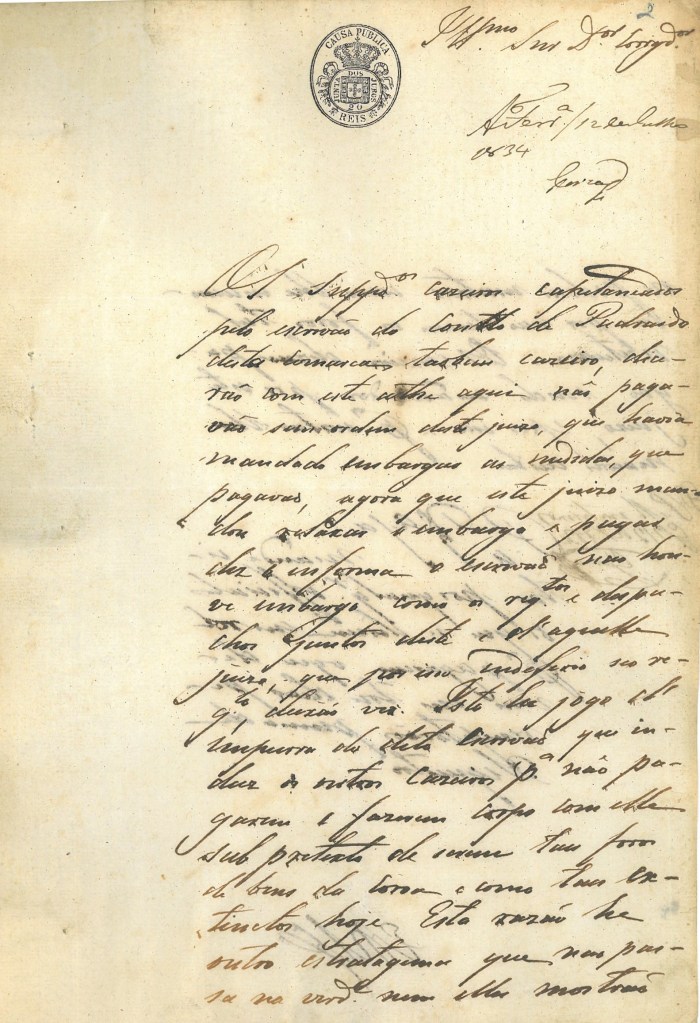 2
CAUSA PUBLICA
JUNTA DOS JUROS
20
REIS
Illmo Snr Dor Corregdor
12 de Julho
1834
Os Suppdos cazeiros capitaneados
pelo escrivão do Coutto de Pedroido
desta comarca tambem cazeiro, dice-
rão com este athe aqui não paga-
vão sem ordem deste juizo, que havia
mandado embargar as medidas, que
pagavão, agora que este juizo man-
dou relaxar o embargo e pagar
diz e informa o escrivão não hou-
ve embargo como os reqtos e despa-
chos juntos deste e d'aquelle
juizo, que por isso indeferio seo re-
qto, deixão ver. Isto he jogo e
do dito Escrivão que in-
duz os outros Cazeiros pa não pa-
garem e fazerem corpo com elle
sub pretexto de serem taes foros
de bens da Coroa e como taes ex-
tinctos hoje. Esta razão he
outro estratagema que não pas-
sa na verde nem elles mostrão